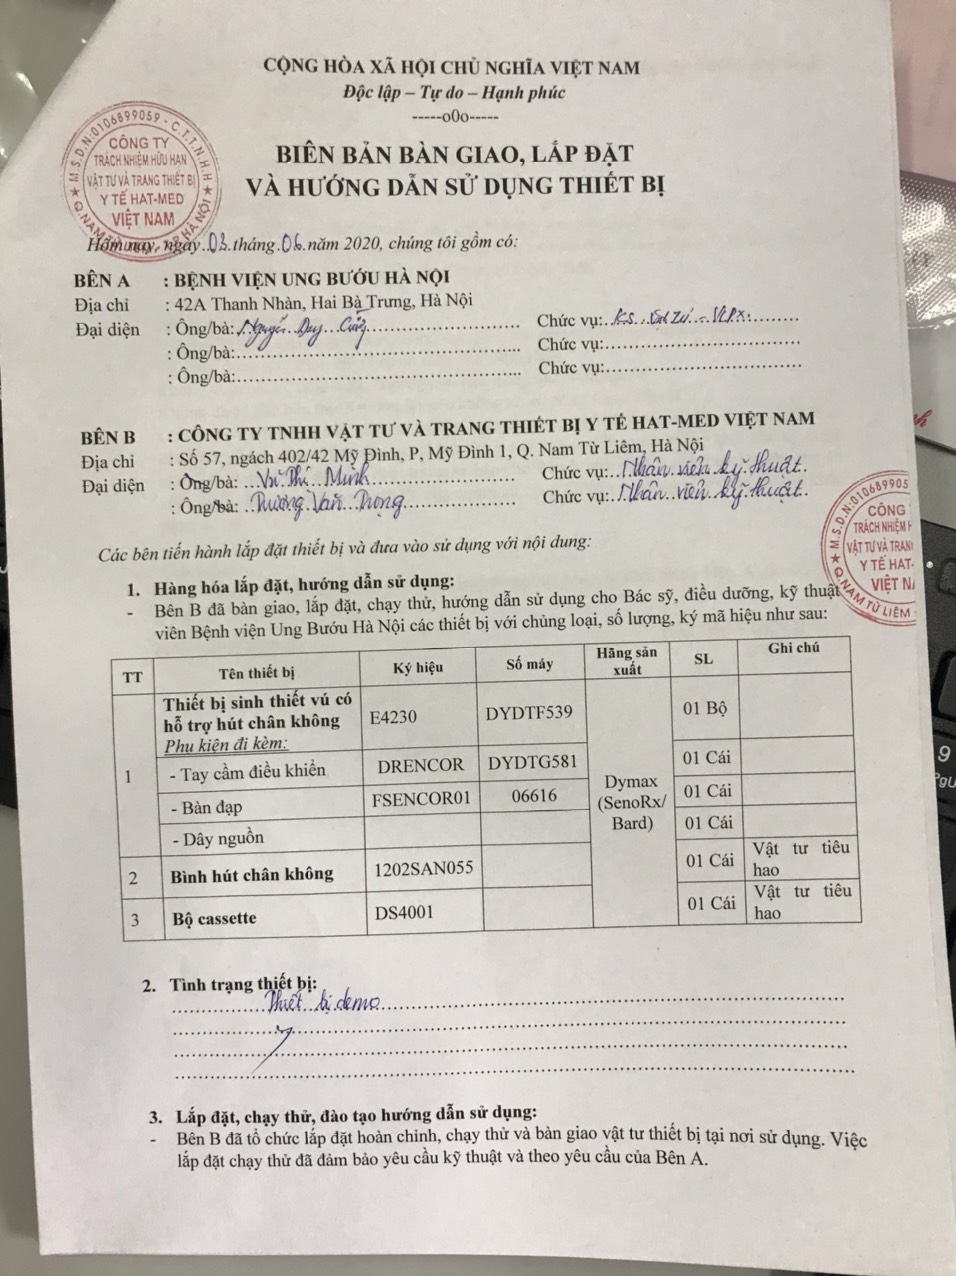 CỘNG HÒA XÃ HỘI CHỦ NGHĨA VIỆT NAM
Độc lập – Tự do – Hạnh phúc
-----o0o-----
BIÊN BẢN BÀN GIAO, LẮP ĐẶT
VÀ HƯỚNG DẪN SỬ DỤNG THIẾT BỊ
M.S.D.N:0106899059 - C.T.T.N.H.H
CÔNG TY
TRÁCH NHIỆM HỮU HẠN
VẬT TƯ VÀ TRANG THIẾT BỊ
Y TẾ HAT-MED
VIỆT NAM
Hôm nay, ngày 03 tháng 06 năm 2020, chúng tôi gồm có:
BÊN A : BỆNH VIỆN UNG BƯỚU HÀ NỘI
Địa chỉ : 42A Thanh Nhàn, Hai Bà Trưng, Hà Nội
Đại diện : Ông/bà: Nguyễn Duy Chức vụ:
: Ông/bà: Chức vụ:
: Ông/bà: Chức vụ:
BÊN B : CÔNG TY TNHH VẬT TƯ VÀ TRANG THIẾT BỊ Y TẾ HAT-MED VIỆT NAM
Địa chỉ : Số 57, ngách 402/42 Mỹ Đình, P, Mỹ Đình 1, Q. Nam Từ Liêm, Hà Nội
Đại diện : Ông/bà: Vũ Thị Minh Chức vụ: Nhân viên kỹ thuật.
: Ông/bà: Trương Văn Trọng Chức vụ: Nhân viên kỹ thuật.
M.S.D.N:010689905
CÔNG
TRÁCH NHIỆM H
VẬT TƯ VÀ TRAN
Y TẾ HAT-
VIỆT NA
Q.NAM TỪ LIÊM
Các bên tiến hành lắp đặt thiết bị và đưa vào sử dụng với nội dung:
1. Hàng hóa lắp đặt, hướng dẫn sử dụng:
- Bên B đã bàn giao, lắp đặt, chạy thử, hướng dẫn sử dụng cho Bác sỹ, điều dưỡng, kỹ thuật
viên Bệnh viện Ung Bướu Hà Nội các thiết bị với chủng loại, số lượng, ký mã hiệu như sau:
TT Tên thiết bị Ký hiệu Số máy Hãng sản xuất SL Ghi chú
1 Thiết bị sinh thiết vú có
hỗ trợ hút chân không E4230 DYDTF539 01 Bộ
Phụ kiện đi kèm:
- Tay cầm điều khiển DRENCOR DYDTG581 01 Cái
Dymax
(SenoRx/
Bard)
- Bàn đạp FSENCOR01 06616 01 Cái
- Dây nguồn 01 Cái
2 Bình hút chân không 1202SAN055 01 Cái Vật tư tiêu
hao
3 Bộ cassette DS4001 01 Cái Vật tư tiêu
hao
2. Tình trạng thiết bị:
Thiết bị demo
3. Lắp đặt, chạy thử, đào tạo hướng dẫn sử dụng:
- Bên B đã tổ chức lắp đặt hoàn chỉnh, chạy thử và bàn giao vật tư thiết bị tại nơi sử dụng. Việc
lắp đặt chạy thử đã đảm bảo yêu cầu kỹ thuật và theo yêu cầu của Bên A.
9
PgU